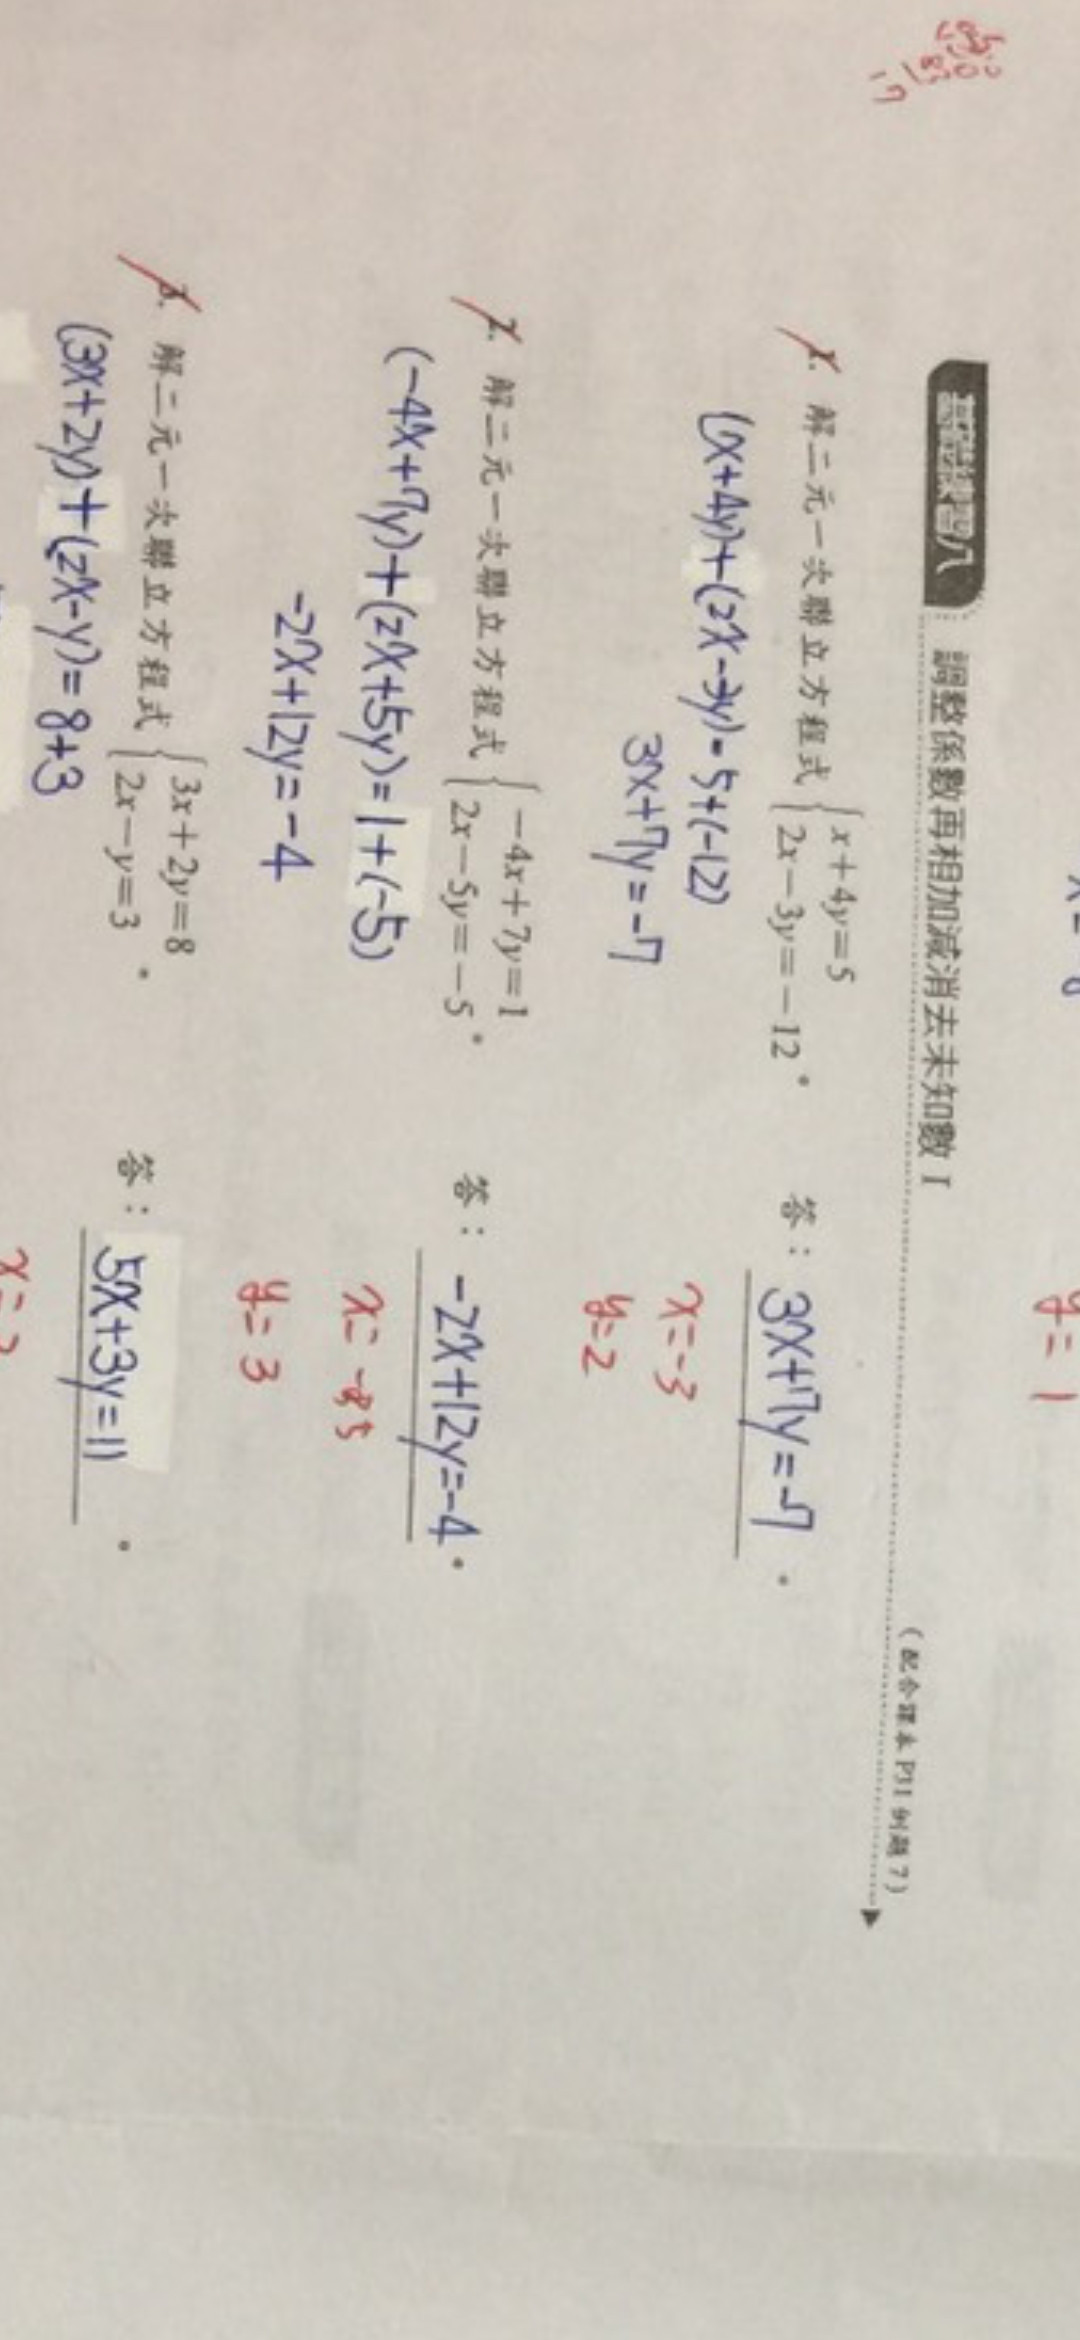 y=1
基礎練習八 調整係數再相加減消去未知數 I
(配合課本 P31 例題 7)
1. 解二元一次聯立方程式 { x+4y=5
2x-3y=-12 。
答： 3x+7y=-7 。
(x+4y)+(2x-3y)=5+(-12)
3x+7y=-7
x=-3
y=2
2. 解二元一次聯立方程式 { -4x+7y=1
2x-5y=-5 。
答： -2x+12y=-4 。
(-4x+7y)+(2x+5y)=1+(-5)
-2x+12y=-4
x=
y=3
3. 解二元一次聯立方程式 { 3x+2y=8
2x-y=3 。
答： 5x+3y=11 。
(3x+2y)+(2x-y)=8+3